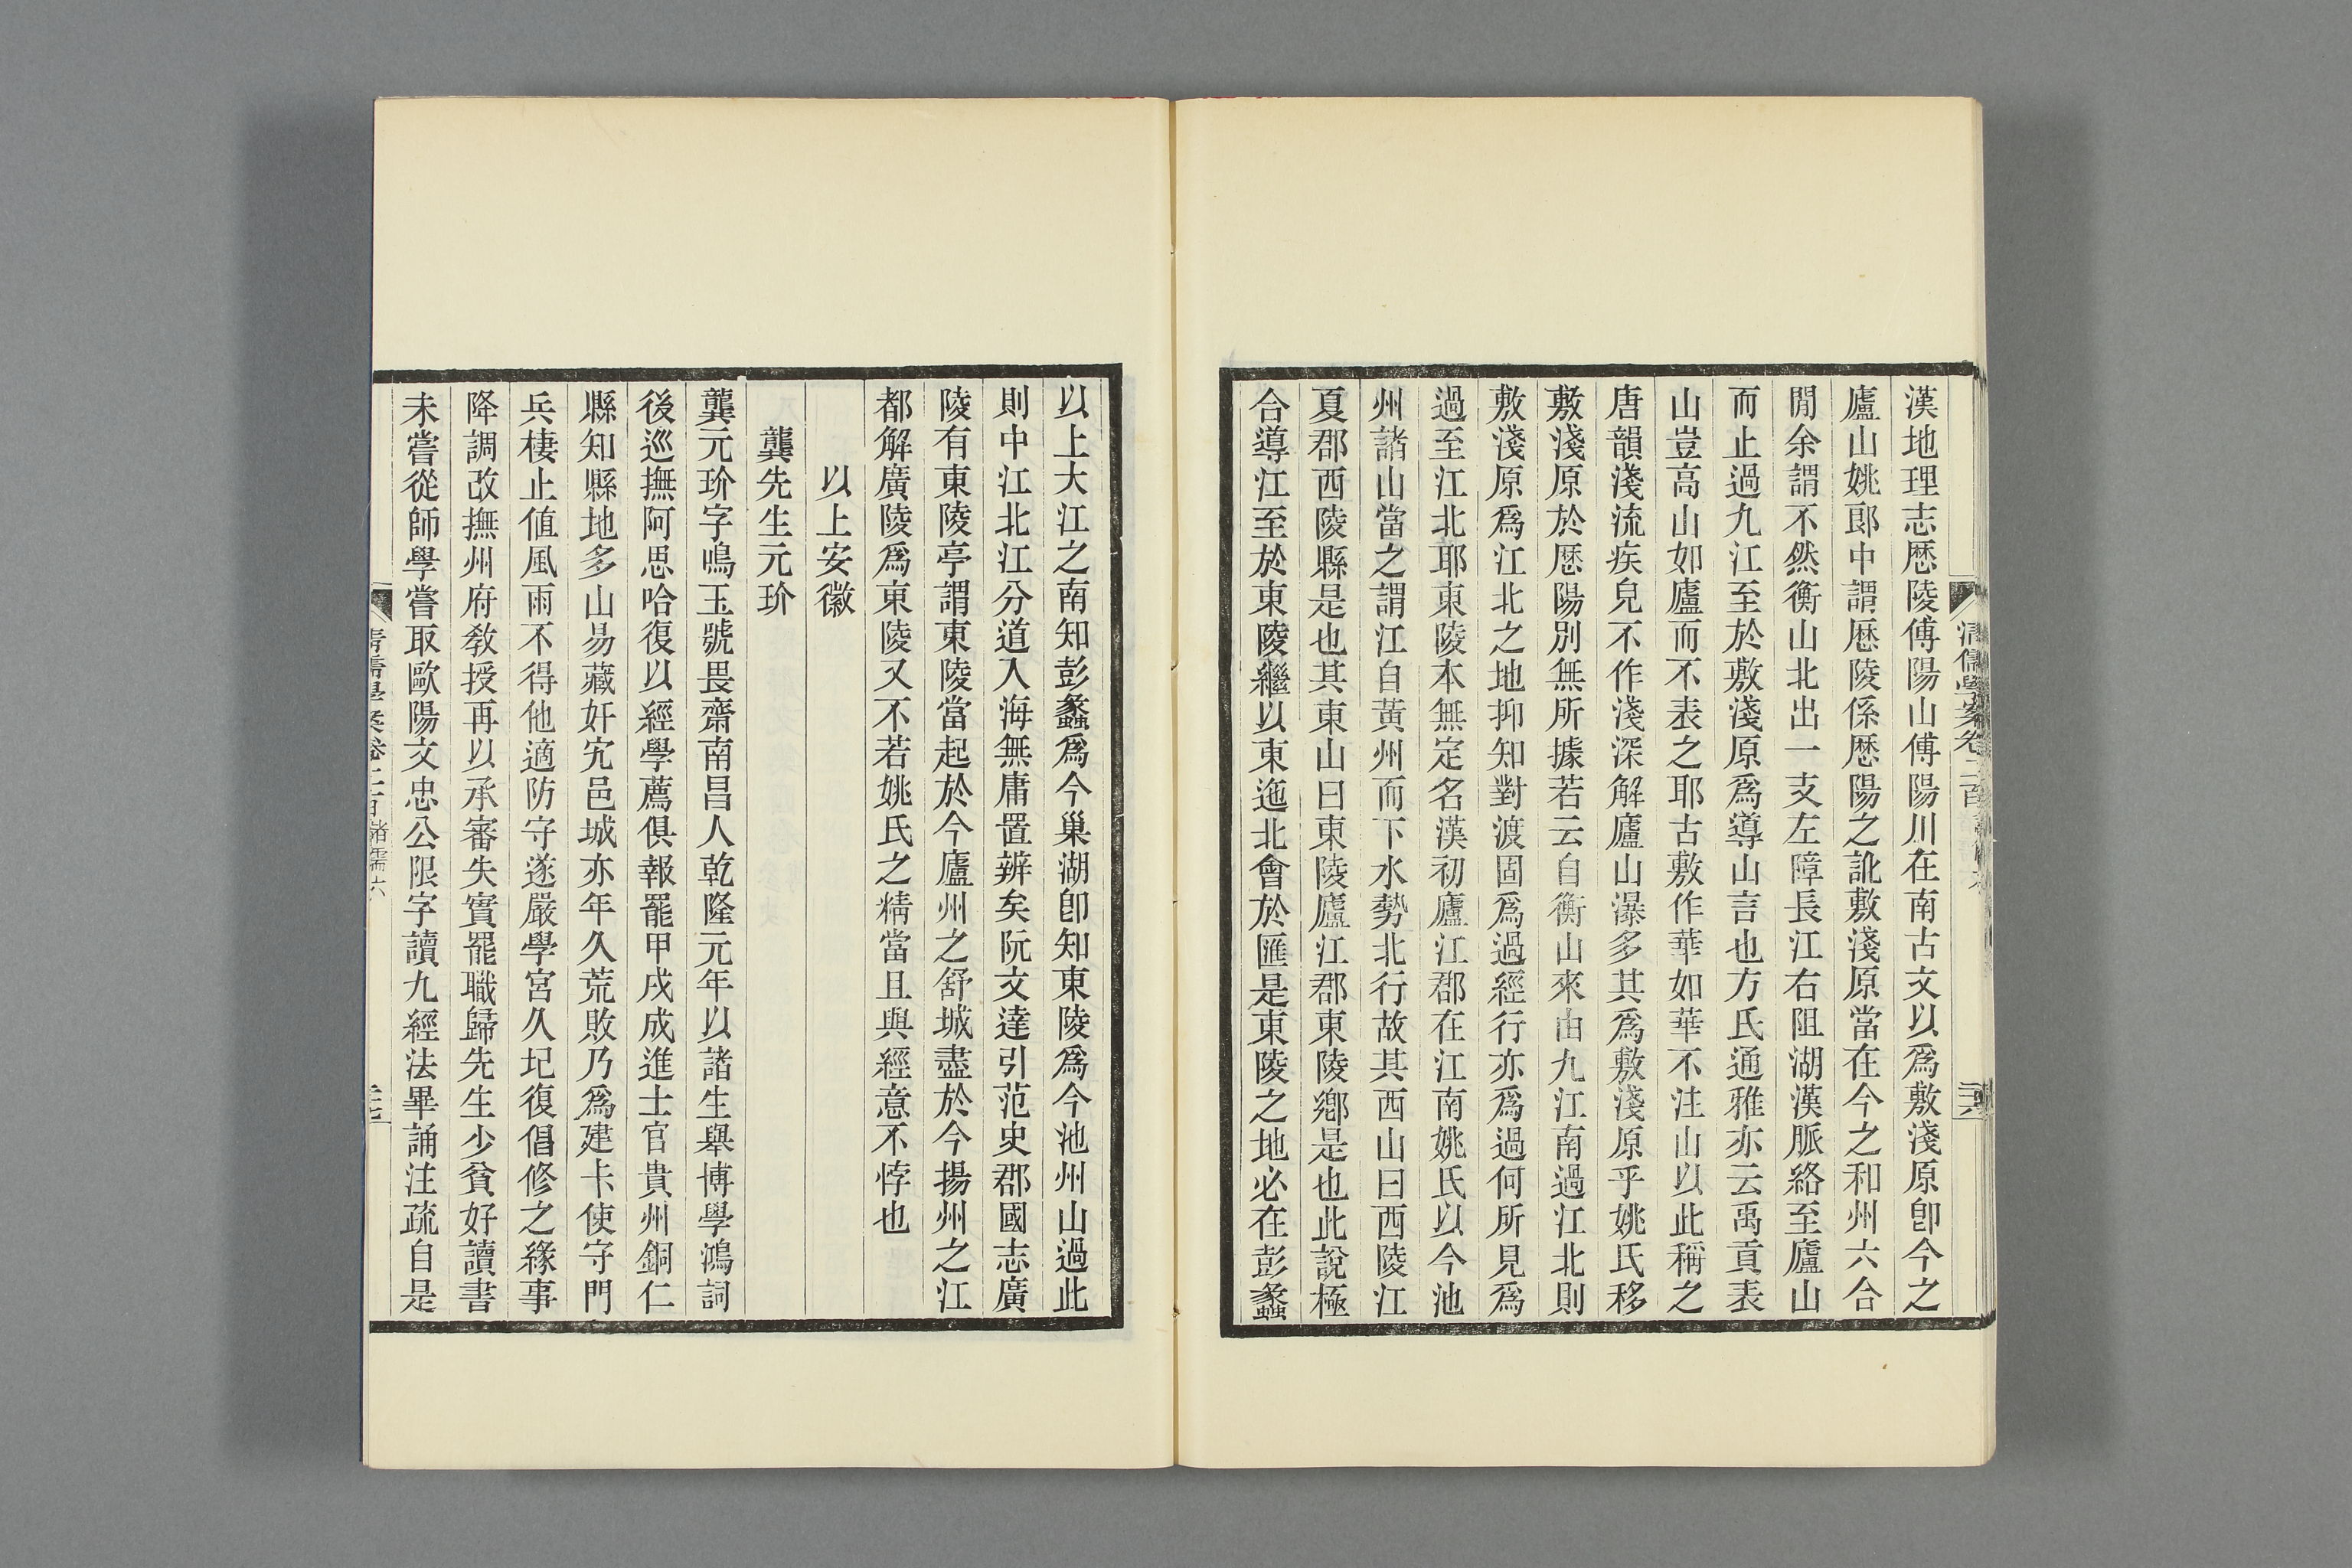 漢地理志厯陵傅陽山傅陽川在南古文以爲敷淺原卽今之
廬山姚郎中謂厯陵係厯陽之訛敷淺原當在今之和州六合
閒余謂不然衡山北出一支左障長江右阻湖漢脈絡至廬山
而止過九江至於敷淺原爲導山言也方氏通雅亦云禹貢表
山豈高山如廬而不表之耶古敷作華如華不注山以此稱之
唐韻淺流疾皃不作淺深解廬山瀑多其爲敷淺原乎姚氏移
敷淺原於厯陽別無所據若云自衡山來由九江南過江北則
敷淺原爲江北之地抑知對渡固爲過經行亦爲過何所見爲
過至江北耶東陵本無定名漢初廬江郡在江南姚氏以今池
州諸山當之謂江自黃州而下水勢北行故其西山曰西陵江
夏郡西陵縣是也其東山曰東陵廬江郡東陵鄉是也此說極
合導江至於東陵繼以東迆北會於匯是東陵之地必在彭蠡
以上大江之南知彭蠡爲今巢湖卽知東陵爲今池州山過此
則中江北江分道入海無庸置辨矣阮文達引范史郡國志廣
陵有東陵亭謂東陵當起於今廬州之舒城盡於今揚州之江
都解廣陵爲東陵又不若姚氏之精當且與經意不悖也
以上安徽
龔先生元玠
龔元玠字鳴玉號畏齋南昌人乾隆元年以諸生舉博學鴻詞
後巡撫阿思哈復以經學薦俱報罷甲戌成進士官貴州銅仁
縣知縣地多山易藏奸宄邑城亦年久荒敗乃爲建卡使守門
兵棲止値風雨不得他適防守遂嚴學宮久圮復倡修之緣事
降調改撫州府敎授再以承審失實罷職歸先生少貧好讀書
未嘗從師學嘗取歐陽文忠公限字讀九經法畢誦注疏自是
清儒學案卷二百諸儒六